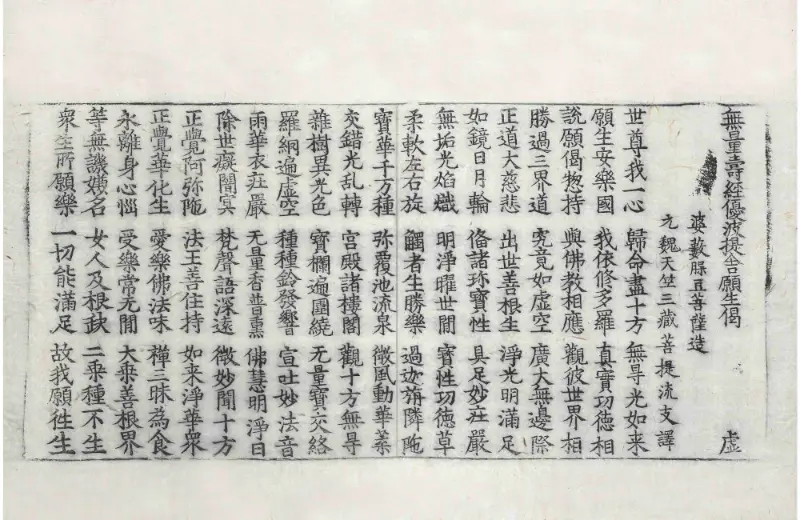 無量壽經優波提舍願生偈 虛
婆藪槃豆菩薩造
元魏天竺三藏菩提流支譯
世尊我一心 歸命盡十方 無㝵光如来
願生安樂國 我依修多羅 真實功德相
說願偈惣持 與佛教相應 觀彼世界相
勝過三界道 究竟如虛空 廣大無邊際
正道大慈悲 出世善根生 淨光明滿足
如鏡日月輪 俻諸珎寶性 具足妙庄嚴
無垢光焰熾 明淨曜世間 寶性功德草
柔軟左右旋 觸者生勝樂 過迦旃隣陁
寶華千万種 弥覆池流泉 微風動華葉
交錯光乱轉 宮殿諸樓閣 觀十方無㝵
雜樹異光色 寶欄遍圍繞 无量寶交絡
羅網遍虛空 種種鈴發響 宣吐妙法音
雨華衣庄嚴 无量香普熏 佛慧明淨日
除世癡闇冥 梵聲語深遠 微妙聞十方
正覺阿弥陁 法王善住持 如来淨華衆
正覺華化生 愛樂佛法味 禪三昧為食
永離身心惱 受樂常无間 大乗善根界
等無譏嫌名 女人及根缺 二乗種不生
衆生所願樂 一切能滿足 故我願徃生